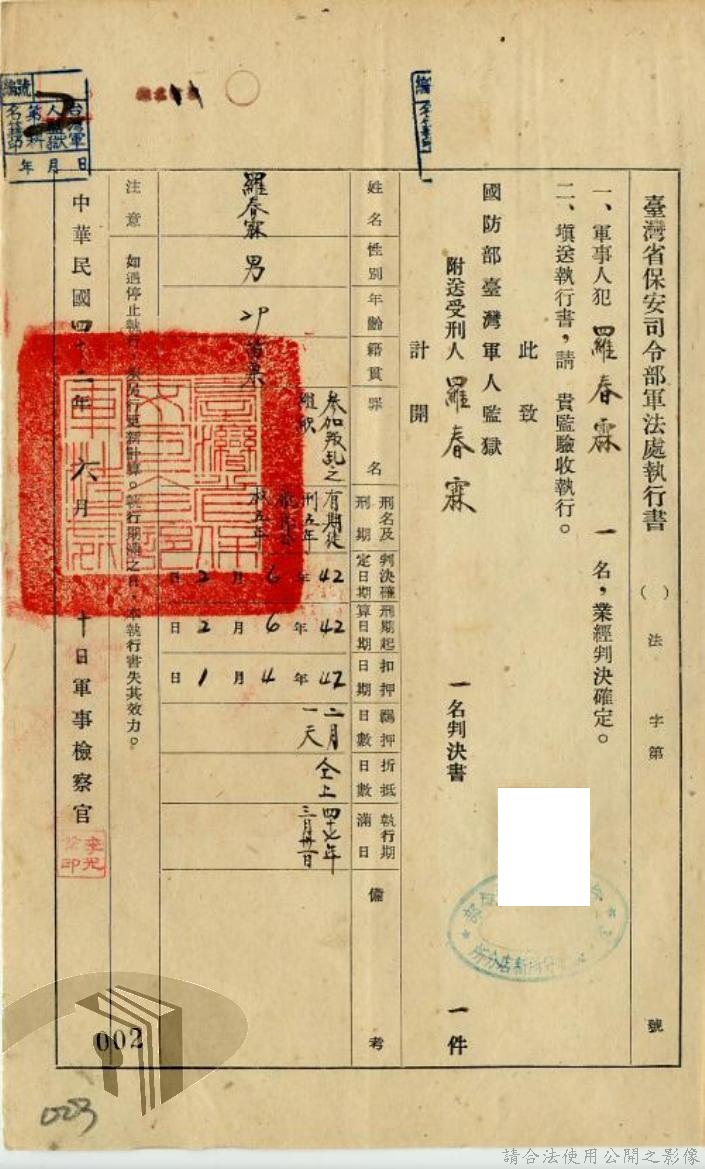 臺灣省保安司令部軍法處執行書 ( ) 法字第 號
一、軍事人犯 羅春霖 一名，業經判決確定。
二、塡送執行書，請 貴監驗收執行。
此致
國防部臺灣軍人監獄
附送受刑人 羅春霖 一名判決書 一件
計開
姓名 羅春霖
性別 男
年齡
籍貫 苗栗
罪名 參加叛乱之組織
刑名及刑期 有期徒刑五年 五年
判決確定日期 42年6月2日
刑期起算日期 42年6月2日
扣押日期 42年4月1日
羈押日數 二月一天
折抵日數 仝上
執行期滿日 四十七年三月卅一日
備考
注意 如遇停止執行 另行更新計算。執行期滿之日，本執行書失其效力。
中華民國四十二年六月 十日軍事檢察官
編號
台灣軍人監獄
第 科
名籍
年 月 日
002
003
請合法使用公開之影像